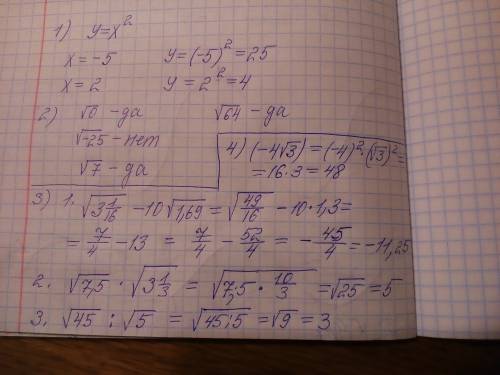 1) y=x²
x=-5 y=(-5)²=25
x=2 y=2²=4
2) √0 -да √64 - да
√-25 - нет
√7 - да
4) (-4√3) = (-4)²·(√3)²=
=16·3=48
3) 1. √3 1/16 -10√1,69 = √49/16 - 10·1,3=
= 7/4 -13 = 7/4 - 52/4 = - 45/4 = -11,25
2. √7,5 · √3 1/3 = √7,5 · 10/3 =√25 =5
3. √45 : √5 = √45:5 =√9 = 3